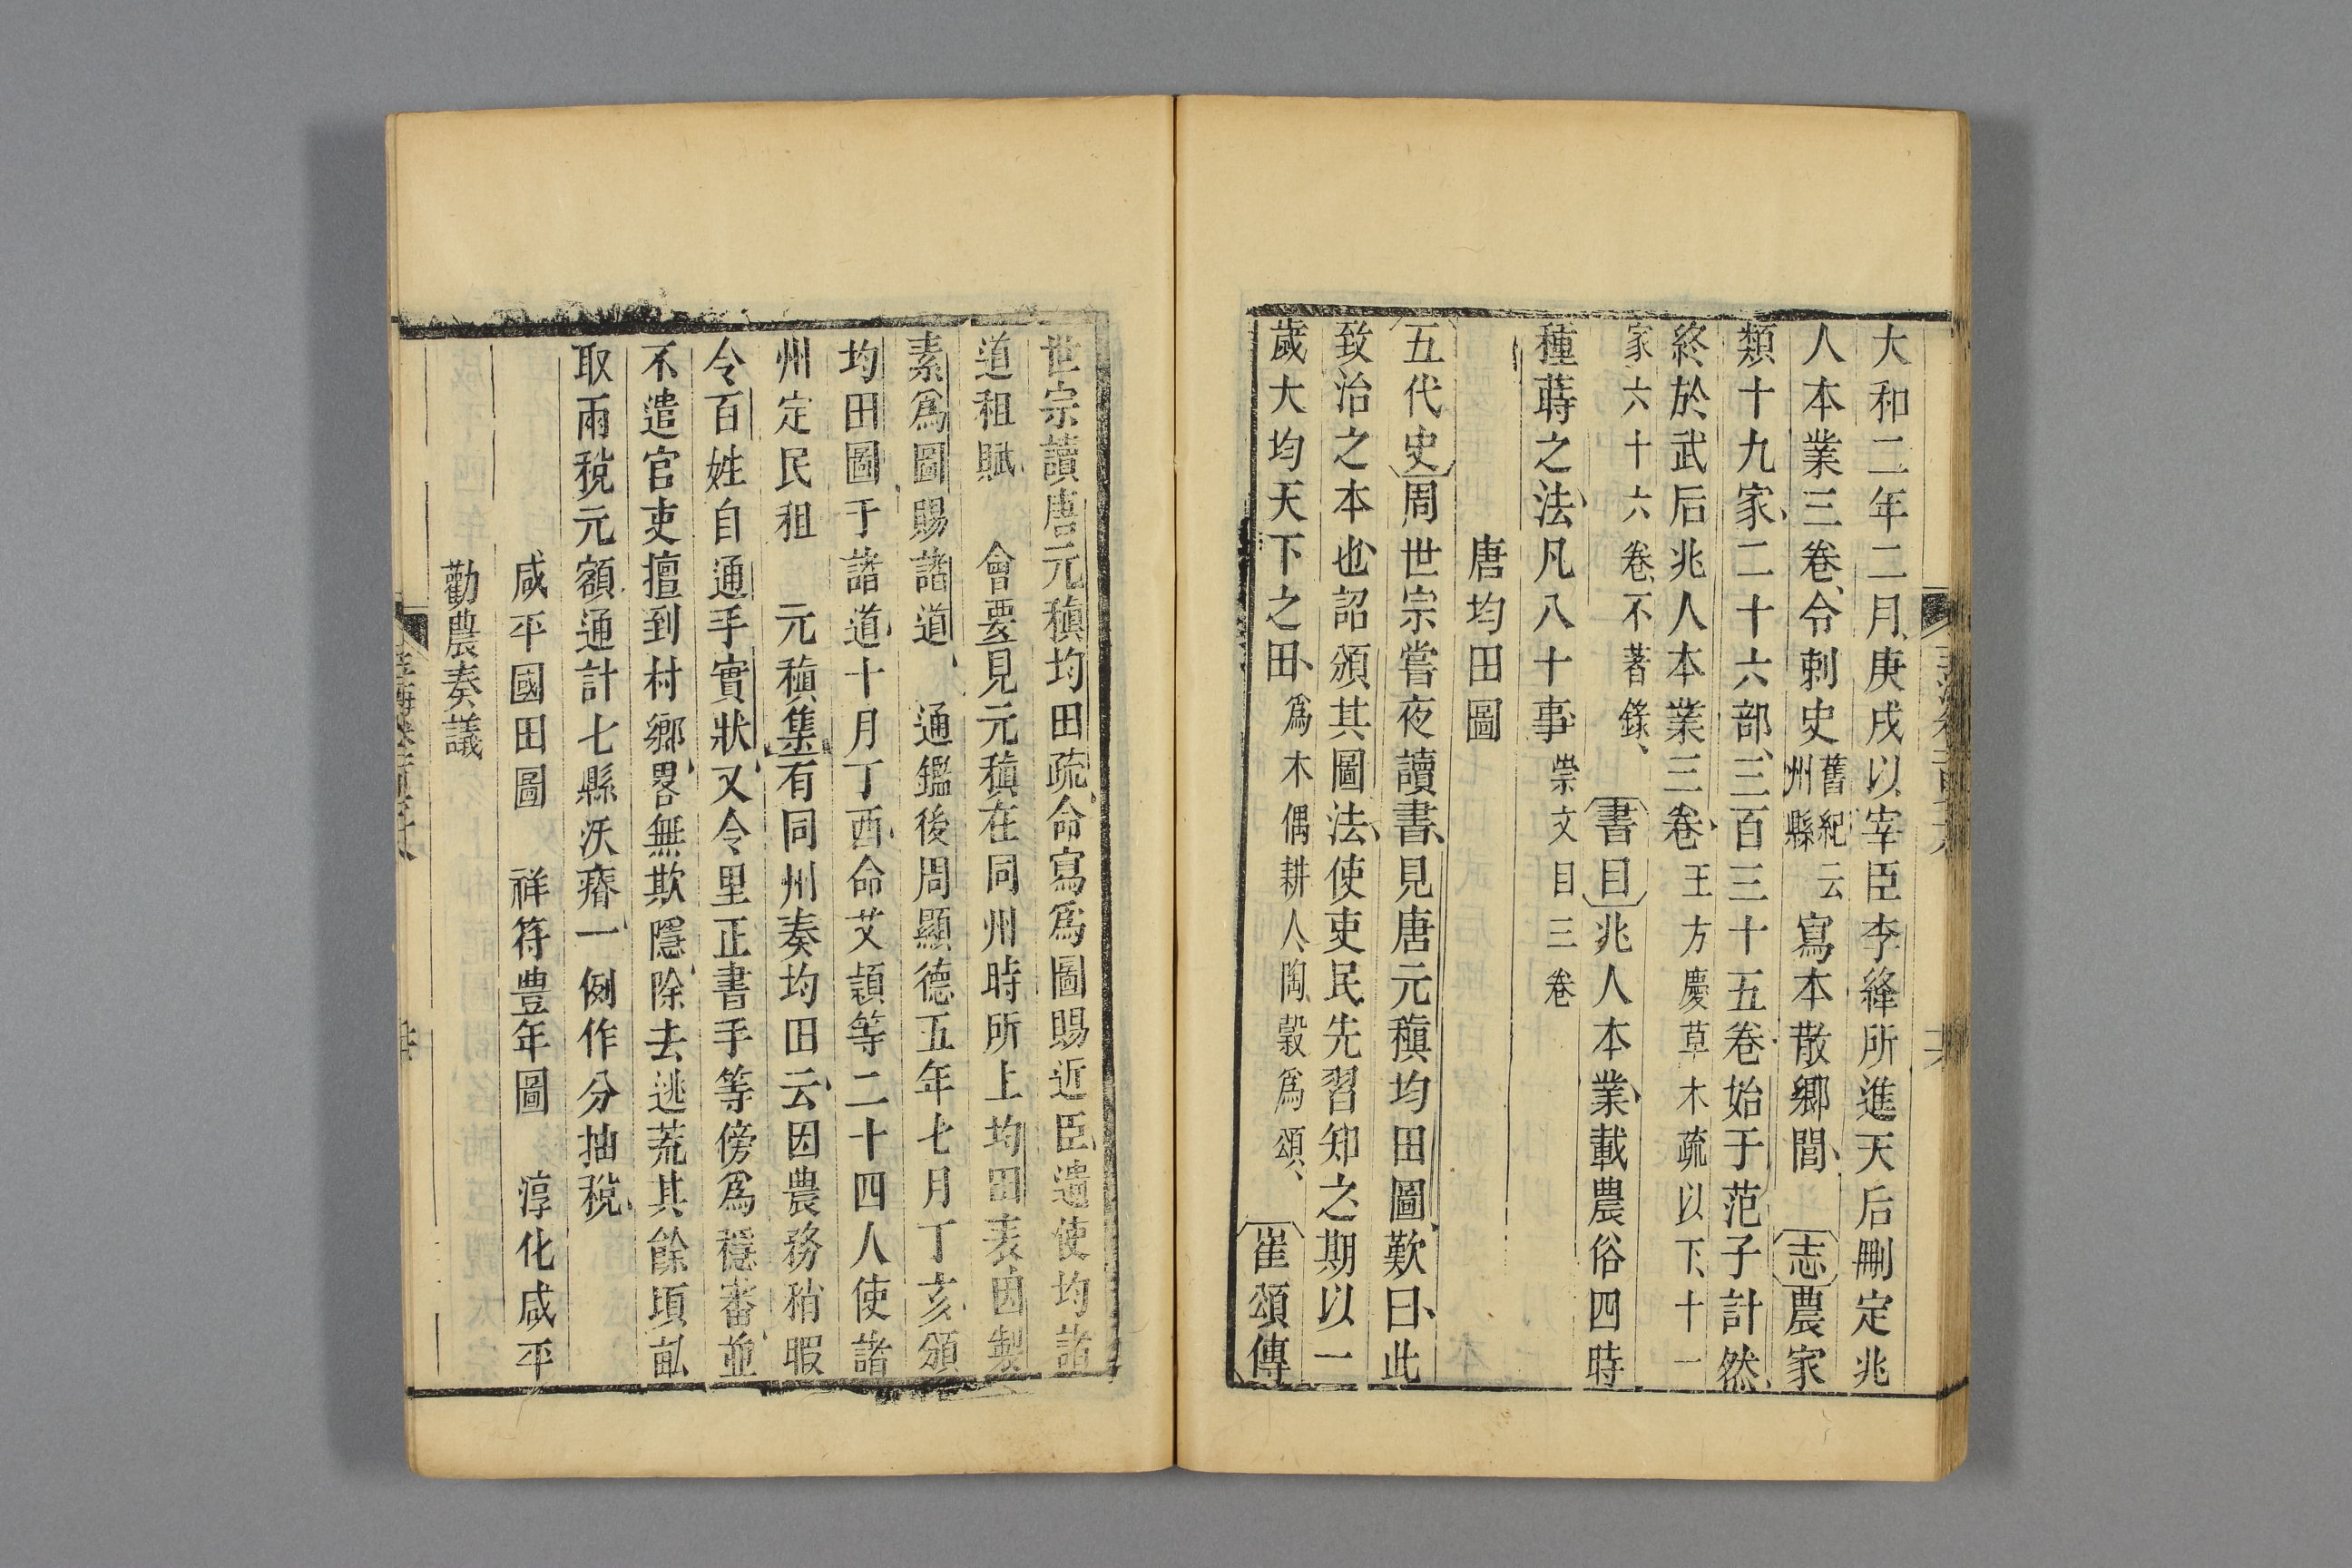 大和二年二月庚戌以宰臣李絳所進天后刪定兆
人本業三卷令刺史舊紀云州縣寫本散鄉閭 志農家
類十九家二十六部三百三十五卷始于范子計然
終於武后兆人本業三卷王方慶草木疏以下十一
家六十六卷不著錄 書目兆人本業載農俗四時
種蒔之法凡八十事崇文目三卷
唐均田圖
五代史周世宗嘗夜讀書見唐元稹均田圖歎曰此
致治之本也詔頒其圖法使吏民先習知之期以一
歲大均天下之田為木偶耕人陶穀為頌 崔頌傳
世宗讀唐元稹均田疏命寫爲圖賜近臣遣使均諸
道租賦 會要見元稹在同州時所上均田表因製
素爲圖賜諸道 通鑑後周顯德五年七月丁亥頒
均田圖于諸道十月丁酉命艾頴等二十四人使諸
州定民租 元稹集有同州奏均田云因農務稍暇
令百姓自通手實狀又令里正書手等傍爲穩審並
不遣官吏擅到村鄉畧無欺隱除去逃荒其餘頃畝
取兩稅元額通計七縣沃瘠一例作分抽稅
咸平國田圖 祥符豊年圖 淳化咸平
勸農奏議